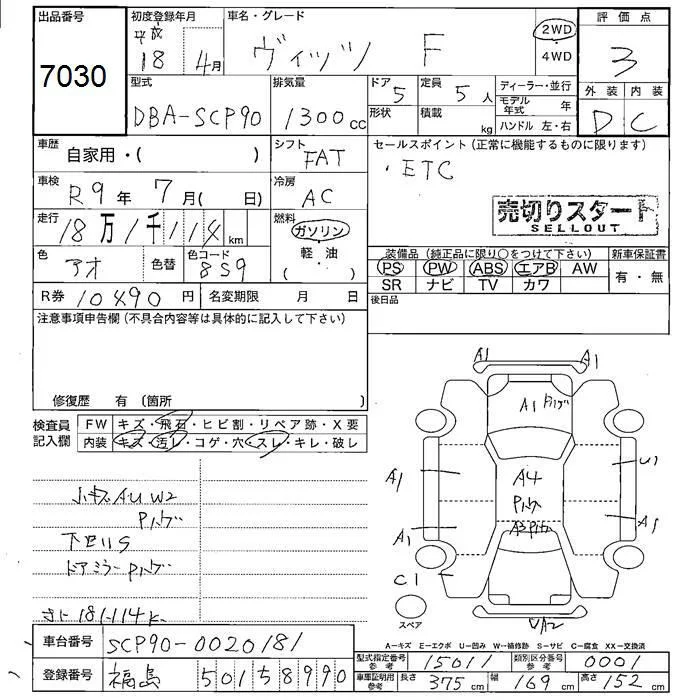 出品番号
7030
初度登録年月
平成
18 4月
車名・グレード
ヴィッツ F
2WD
4WD
評価点
3
外装 内装
D C
型式
DBA-SCP90
排気量
1300cc
ドア 5
形状
定員 5人
積載 kg
ディーラー・並行
モデル年式 年
ハンドル 左・右
車歴 自家用・( )
シフト FAT
車検 R9年 7月( 日)
冷房 AC
走行 18万1千114km
燃料 ガソリン
軽・油
( )
色 アオ 色替
色コード 8S9
R券 10490円
名変期限 月 日
セールスポイント(正常に機能するものに限ります)
・ETC
売切りスタート
SELLOUT
装備品(純正品に限り○をつけて下さい)
PS PW ABS エアB AW
SR ナビ TV カワ
新車保証書
有・無
後日品
注意事項申告欄(不具合内容等は具体的に記入して下さい)
修復歴 有(箇所 )
検査員記入欄
FW キズ・飛石・ヒビ割・リペア跡・X要
内装 キズ・汚レ・コゲ・穴・スレ・キレ・破レ
小キズAUW2
Pハゲ
下回りS
ドアミラーPハゲ
181.114K
A1
A1
A1 Pハゲ
A1
A4
Pハゲ
U1
A1
A1
C1
スペア
A-キズ E-エクボ U-凹み W-補修跡 S-サビ C-腐食 XX-交換済
車台番号 SCP90-0020181
登録番号 福島 501 5 8990
型式指定番号 参考 15011
類別区分番号 参考 0001
車庫証明用 参考
長さ 375cm
幅 169cm
高さ 152cm